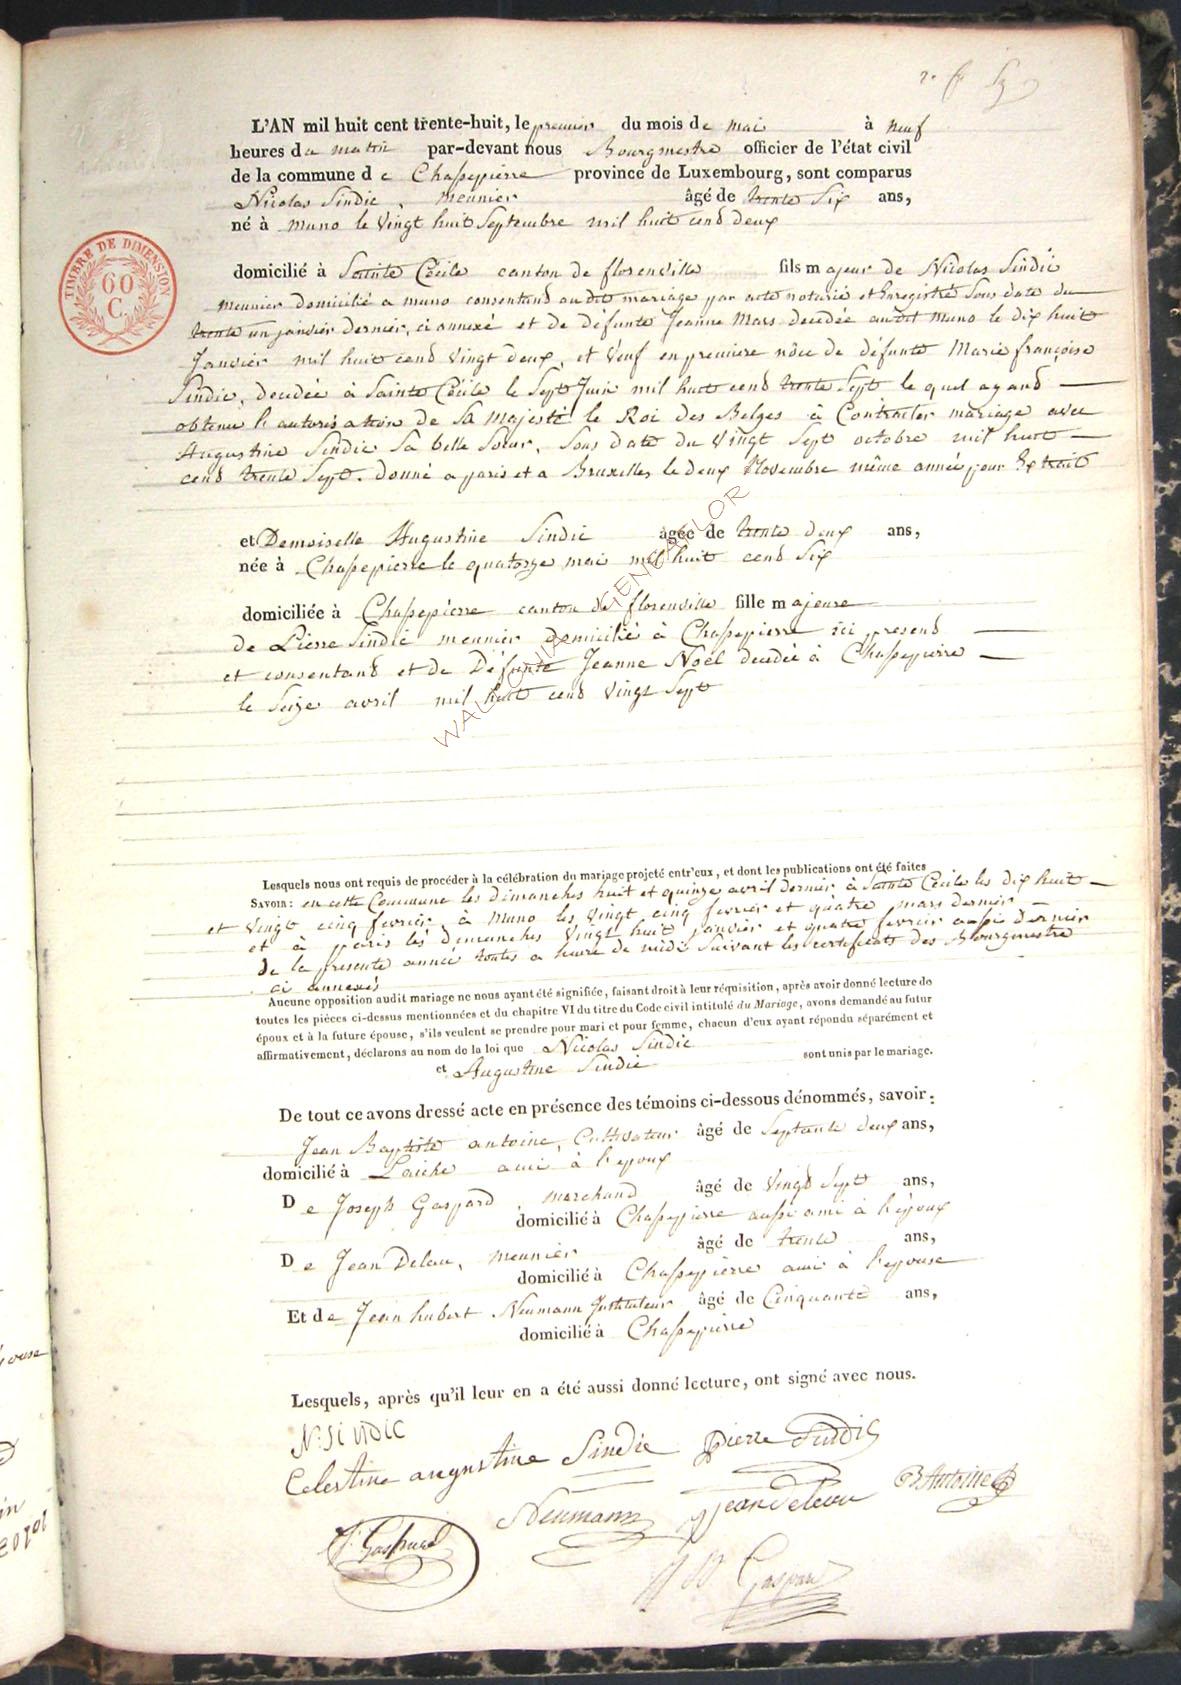 L'AN mil huit cent trente-huit, le premier du mois de mai à neuf
heures du matin par-devant nous Bourgmestre officier de l'état civil
de la commune de Chassepierre province de Luxembourg, sont comparus
Nicolas Sindic, meunier âgé de trente six ans,
né à muno le vingt huit Septembre mil huit cend deux
TIMBRE DE DIMENSION
60
C.
domicilié à Sainte Cécile canton de florenville fils majeur de Nicolas Sindic
meunier domicilié a muno consentand au dit mariage par acte notarié et Enregistré Sous date du
trente un janvier dernier, ci annexé et de défunte Jeanne Mars decedée au dit muno le dix huit
Janvier mil huit cend vingt deux, et veuf en premiere nôce de défunte Marie françoise
Sindic, decedée à Sainte Cécile le Sept Juin mil huit cend trente Sept le quel ayand
obtenu l'autorisation de Sa Majesté le Roi des Belges à Contracter mariage avec
Augustine Sindic Sa belle Soeur, Sous date du vingt Sept octobre mil huit
cend trente Sept. donné a paris et a Bruxelles le deux Novembre même année pour Extrait
et Demoiselle Augustine Sindic âgée de trente deux ans,
née à Chassepierre le quatorze mai mil huit cend Six
domiciliée à Chassepierre canton de florenville fille majeure
de Pierre Sindic meunier Domicilié à Chassepierre ici presend
et consentand et de Défunte Jeanne Noël decedée à Chassepierre
le Seize avril mil huit cend vingt Sept
WALLONIA GENEALOR
Lesquels nous ont requis de procéder à la célébration du mariage projeté entr'eux, et dont les publications ont été faites
SAVOIR: en cette Commune les dimanches huit et quinze avril dernier à Sainte Cécile les dix huit
et vingt cinq fevrier, à Muno les vingt cinq fevrier et quatre mars dernier
et à paris les dimanches vingt huit janvier et quatre fevrier aussi dernier
de la presente année toutes a heure de midi Suivant les certificats des Bourgmestre
ci annexés
Aucune opposition audit mariage ne nous ayant été signifiée, faisant droit à leur réquisition, après avoir donné lecture de
toutes les pièces ci-dessus mentionnées et du chapitre VI du titre du Code civil intitulé du Mariage, avons demandé au futur
époux et à la future épouse, s'ils veulent se prendre pour mari et pour femme, chacun d'eux ayant répondu séparément et
affirmativement, déclarons au nom de la loi que Nicolas Sindic
et Augustine Sindic sont unis par le mariage.
De tout ce avons dressé acte en présence des témoins ci-dessous dénommés, savoir:
Jean Baptiste antoine, Cultivateur âgé de Septante deux ans,
domicilié à Laiche ami à l'epoux
De Joseph Gaspard, marchand âgé de vingd Sept ans,
domicilié à Chassepierre aussi ami à l'époux
De Jean Delau, meunier âgé de trente ans,
domicilié à Chassepierre ami à l'epouse
Et de Jean hubert Neumann Instituteur âgé de Cinquante ans,
domicilié à Chassepierre
Lesquels, après qu'il leur en a été aussi donné lecture, ont signé avec nous.
N. SiNDIC
Celestine augustine Sindic pierre Sindic
Neumann Jean Delau B Antoine
J. Gaspard
Gaspard